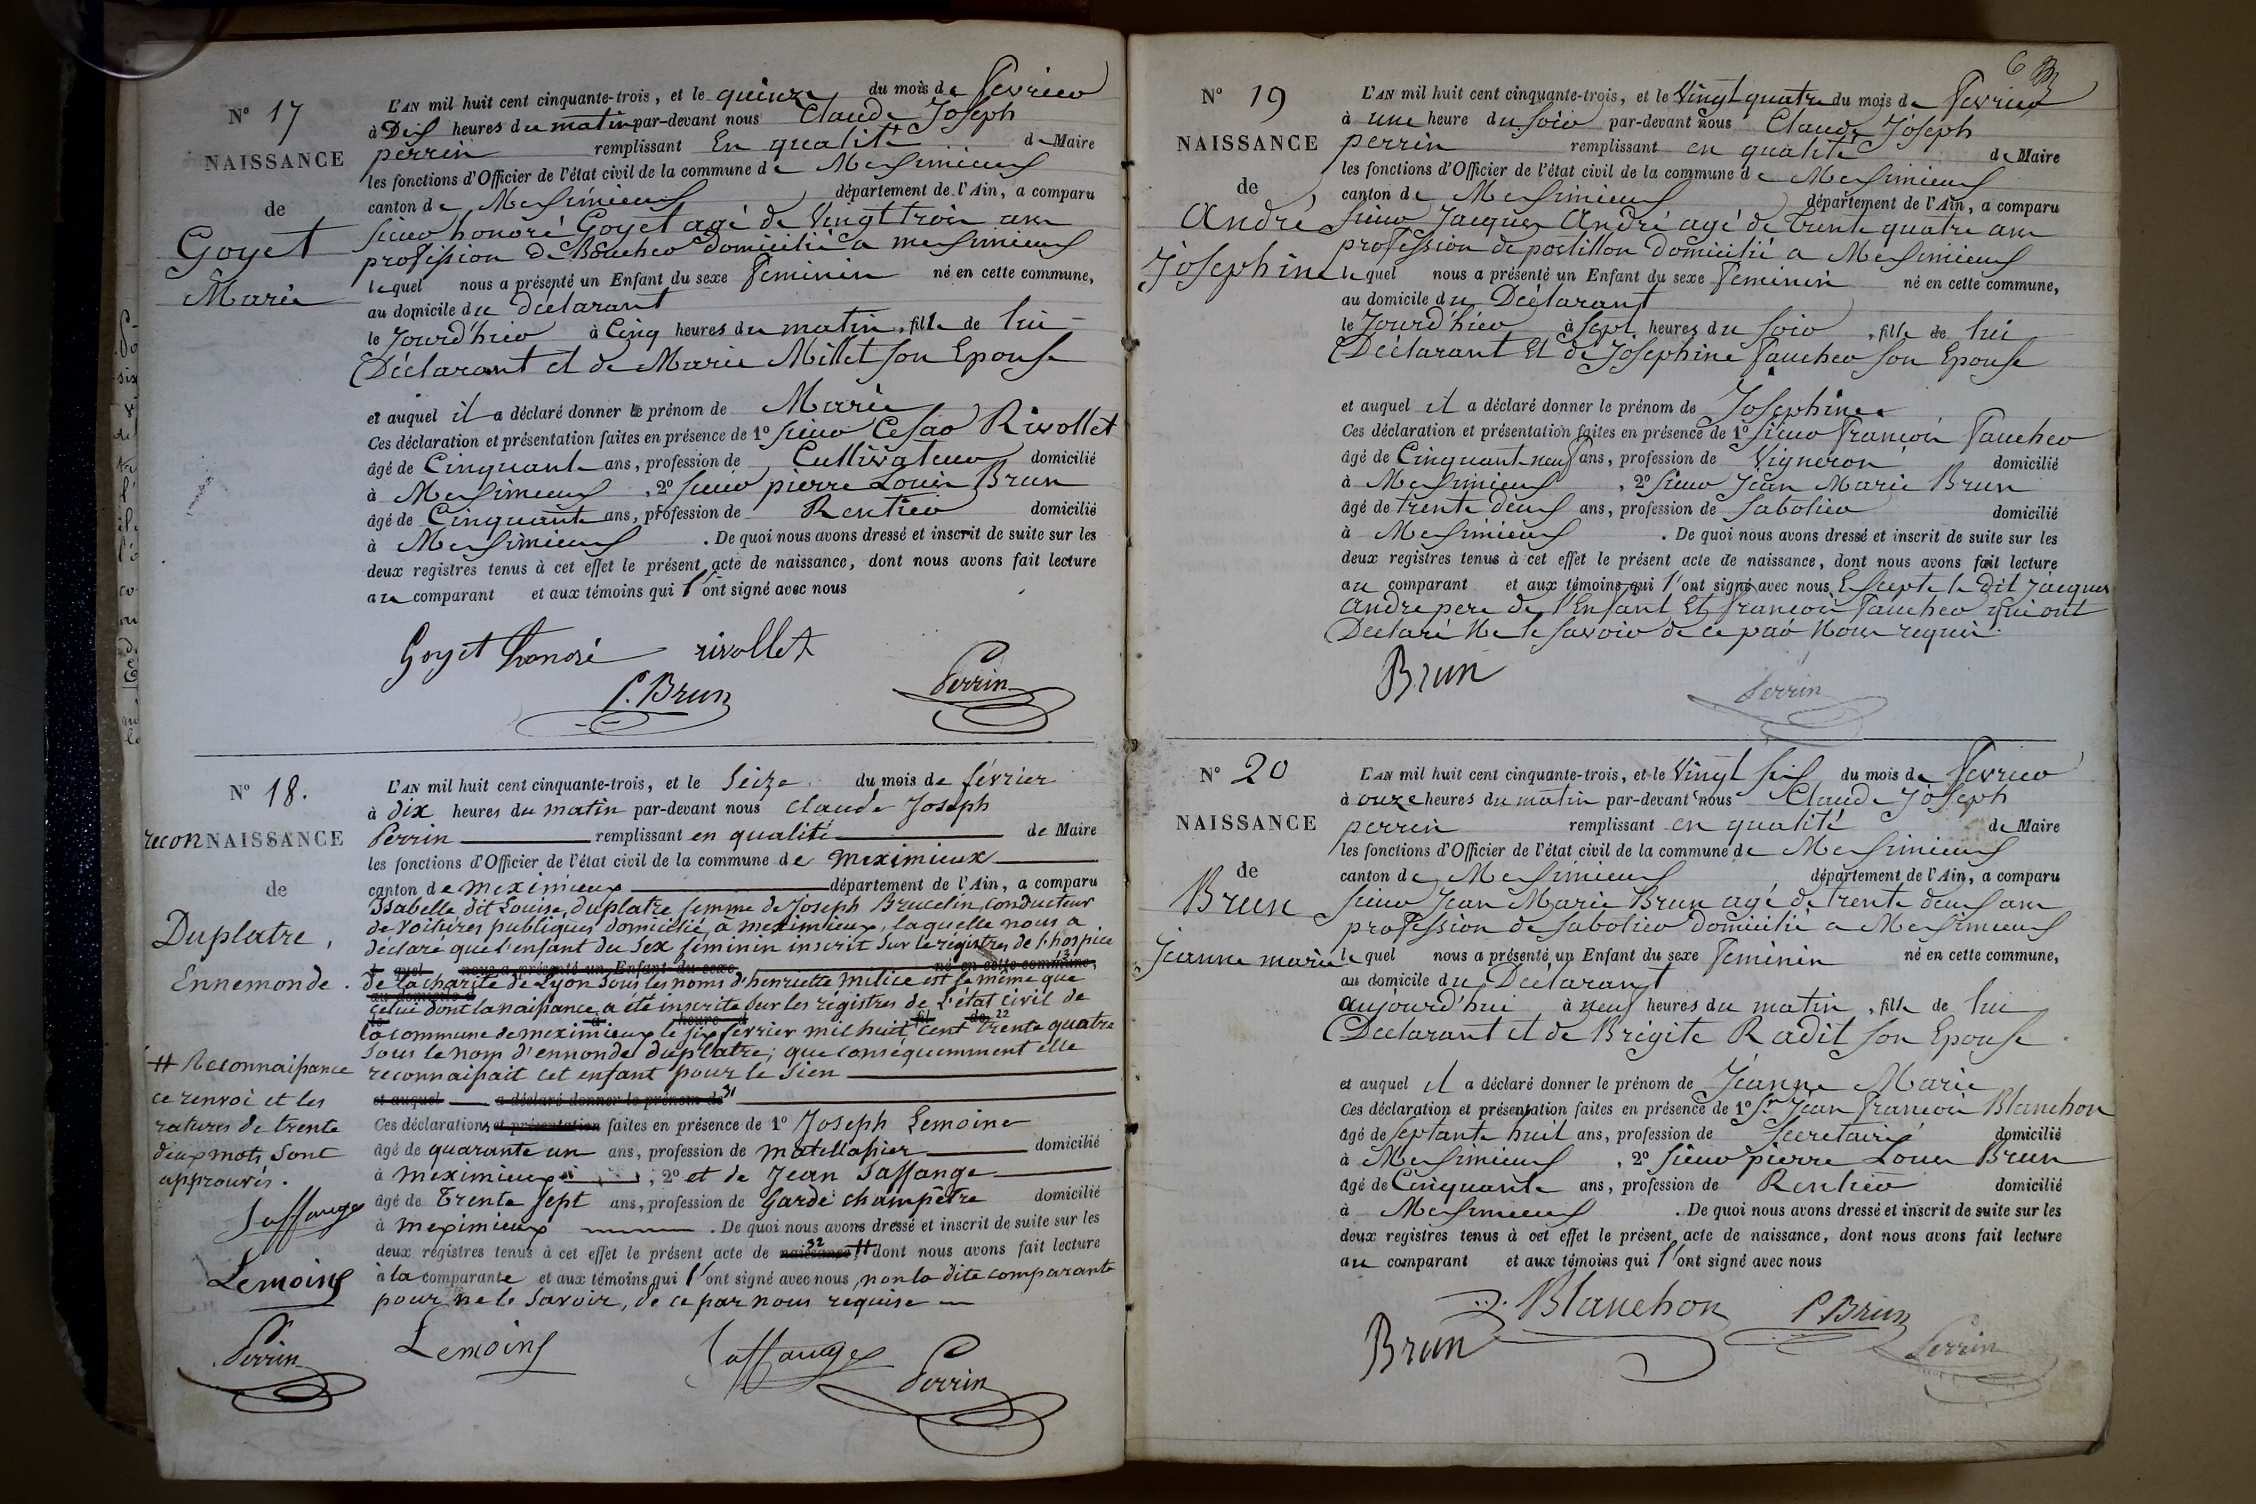 N° 17
NAISSANCE
de
Goyet
Marie
L'AN mil huit cent cinquante-trois, et le quinze du mois de fevrier
à Dix heures du matin par-devant nous Claude Joseph
perrin remplissant En qualité de Maire
les fonctions d'Officier de l'état civil de la commune de Meximieux
canton de Meximieux département de l'Ain, a comparu
sieur honoré Goyet agé de vingt trois ans
profession de Boucher domicilié a meximieux
lequel nous a présenté un Enfant du sexe feminin né en cette commune,
au domicile du declarant
le Jourd'hier à Cinq heures du matin, fille de lui
Déclarant et de Marie Millet son Epouse
et auquel il a déclaré donner le prénom de Marie
Ces déclaration et présentation faites en présence de 1° sieur Cesar Rivollet
âgé de Cinquante ans, profession de Cultivateur domicilié
à Meximieux, 2° sieur pierre Louis Brun
âgé de Cinquante ans, profession de Rentier domicilié
à Meximieux. De quoi nous avons dressé et inscrit de suite sur les
deux registres tenus à cet effet le présent acte de naissance, dont nous avons fait lecture
au comparant et aux témoins qui l'ont signé avec nous
Goyet honoré rivollet
P. Brun Perrin
N° 18.
reconNAISSANCE
de
Duplatre,
Ennemonde.
# Reconnaissance
ce renvoi et les
ratures de trente
deux mots sont
approuvés.
Saffange
Lemoine
Perrin
L'AN mil huit cent cinquante-trois, et le seize du mois de février
à dix heures du matin par-devant nous Claude Joseph
Perrin remplissant en qualité de Maire
les fonctions d'Officier de l'état civil de la commune de meximieux
canton de meximieux département de l'Ain, a comparu
Isabelle dit Louise, duplatre femme de Joseph Brucelin, conducteur
de voitures publiques domicilié à meximieux, laquelle nous a
déclaré que l'enfant du sex féminin inscrit sur le registres de l'hospice
quel nous a présenté un Enfant du sexe né en cette commune,
de la charité de Lyon sous les noms d'henriette milice est le même que
au domicile d
celui dont la naissance a été inscrite sur les régistres de l'état civil de
le à heure d fil de 22
la commune de meximieux le six février mil huit cent trente quatre
sous le nom d'ennonde duplatre; que conséquemment elle
reconnaissait cet enfant pour le sien
et auquel a déclaré donner le prénom de 31
Ces déclarations et présentation faites en présence de 1° Joseph Lemoine
âgé de quarante un ans, profession de matellassier domicilié
à meximieux, 2° et de Jean Saffange
âgé de trente sept ans, profession de garde champêtre domicilié
à meximieux. De quoi nous avons dressé et inscrit de suite sur les
deux registres tenus à cet effet le présent acte de naissance 32 # dont nous avons fait lecture
à la comparante et aux témoins qui l'ont signé avec nous, non la dite comparante
pour ne le savoir, de ce par nous requise
Lemoine Saffange Perrin
6
N° 19
NAISSANCE
de
André
Josephine
L'AN mil huit cent cinquante-trois, et le Vingt quatre du mois de fevrier
à une heure du soir par-devant nous Claude Joseph
perrin remplissant en qualité de Maire
les fonctions d'Officier de l'état civil de la commune de Meximieux
canton de Meximieux département de l'Ain, a comparu
sieur Jacques André agé de trente quatre ans
profession de postillon domicilié a Meximieux
lequel nous a présenté un Enfant du sexe feminin né en cette commune,
au domicile du Déclarant
le Jourd'hier à sept heures du soir, fille de lui
Déclarant Et de Josephine faucher son Epouse
et auquel il a déclaré donner le prénom de Josephine
Ces déclaration et présentation faites en présence de 1° sieur françois faucher
âgé de Cinquante neuf ans, profession de Vigneron domicilié
à Meximieux, 2° sieur Jean Marie Brun
âgé de trente deux ans, profession de sabotier domicilié
à Meximieux. De quoi nous avons dressé et inscrit de suite sur les
deux registres tenus à cet effet le présent acte de naissance, dont nous avons fait lecture
au comparant et aux témoins qui l'ont signé avec nous Excepte le dit Jacques
andré pere de l'Enfant Et françois faucher qui ont
Declaré Ne le savoir de ce par Nous requis.
Brun Perrin
N° 20
NAISSANCE
de
Brun
Jeanne marie
L'AN mil huit cent cinquante-trois, et le Vingt six du mois de fevrier
à onze heures du matin par-devant nous Claude Joseph
perrin remplissant en qualité de Maire
les fonctions d'Officier de l'état civil de la commune de Meximieux
canton de Meximieux département de l'Ain, a comparu
sieur Jean Marie Brun agé de trente deux ans
profession de sabotier domicilié a Meximieux
lequel nous a présenté un Enfant du sexe feminin né en cette commune,
au domicile du Déclarant
aujourd'hui à neuf heures du matin, fille de lui
Declarant et de Brigite Radit son Epouse
et auquel il a déclaré donner le prénom de Jeanne Marie
Ces déclaration et présentation faites en présence de 1° Sr Jean françois Blanchon
âgé de septante huit ans, profession de secretaire domicilié
à Meximieux, 2° sieur pierre Louis Brun
âgé de Cinquante ans, profession de Rentier domicilié
à Meximieux. De quoi nous avons dressé et inscrit de suite sur les
deux registres tenus à cet effet le présent acte de naissance, dont nous avons fait lecture
au comparant et aux témoins qui l'ont signé avec nous
Brun Blanchon P Brun Perrin